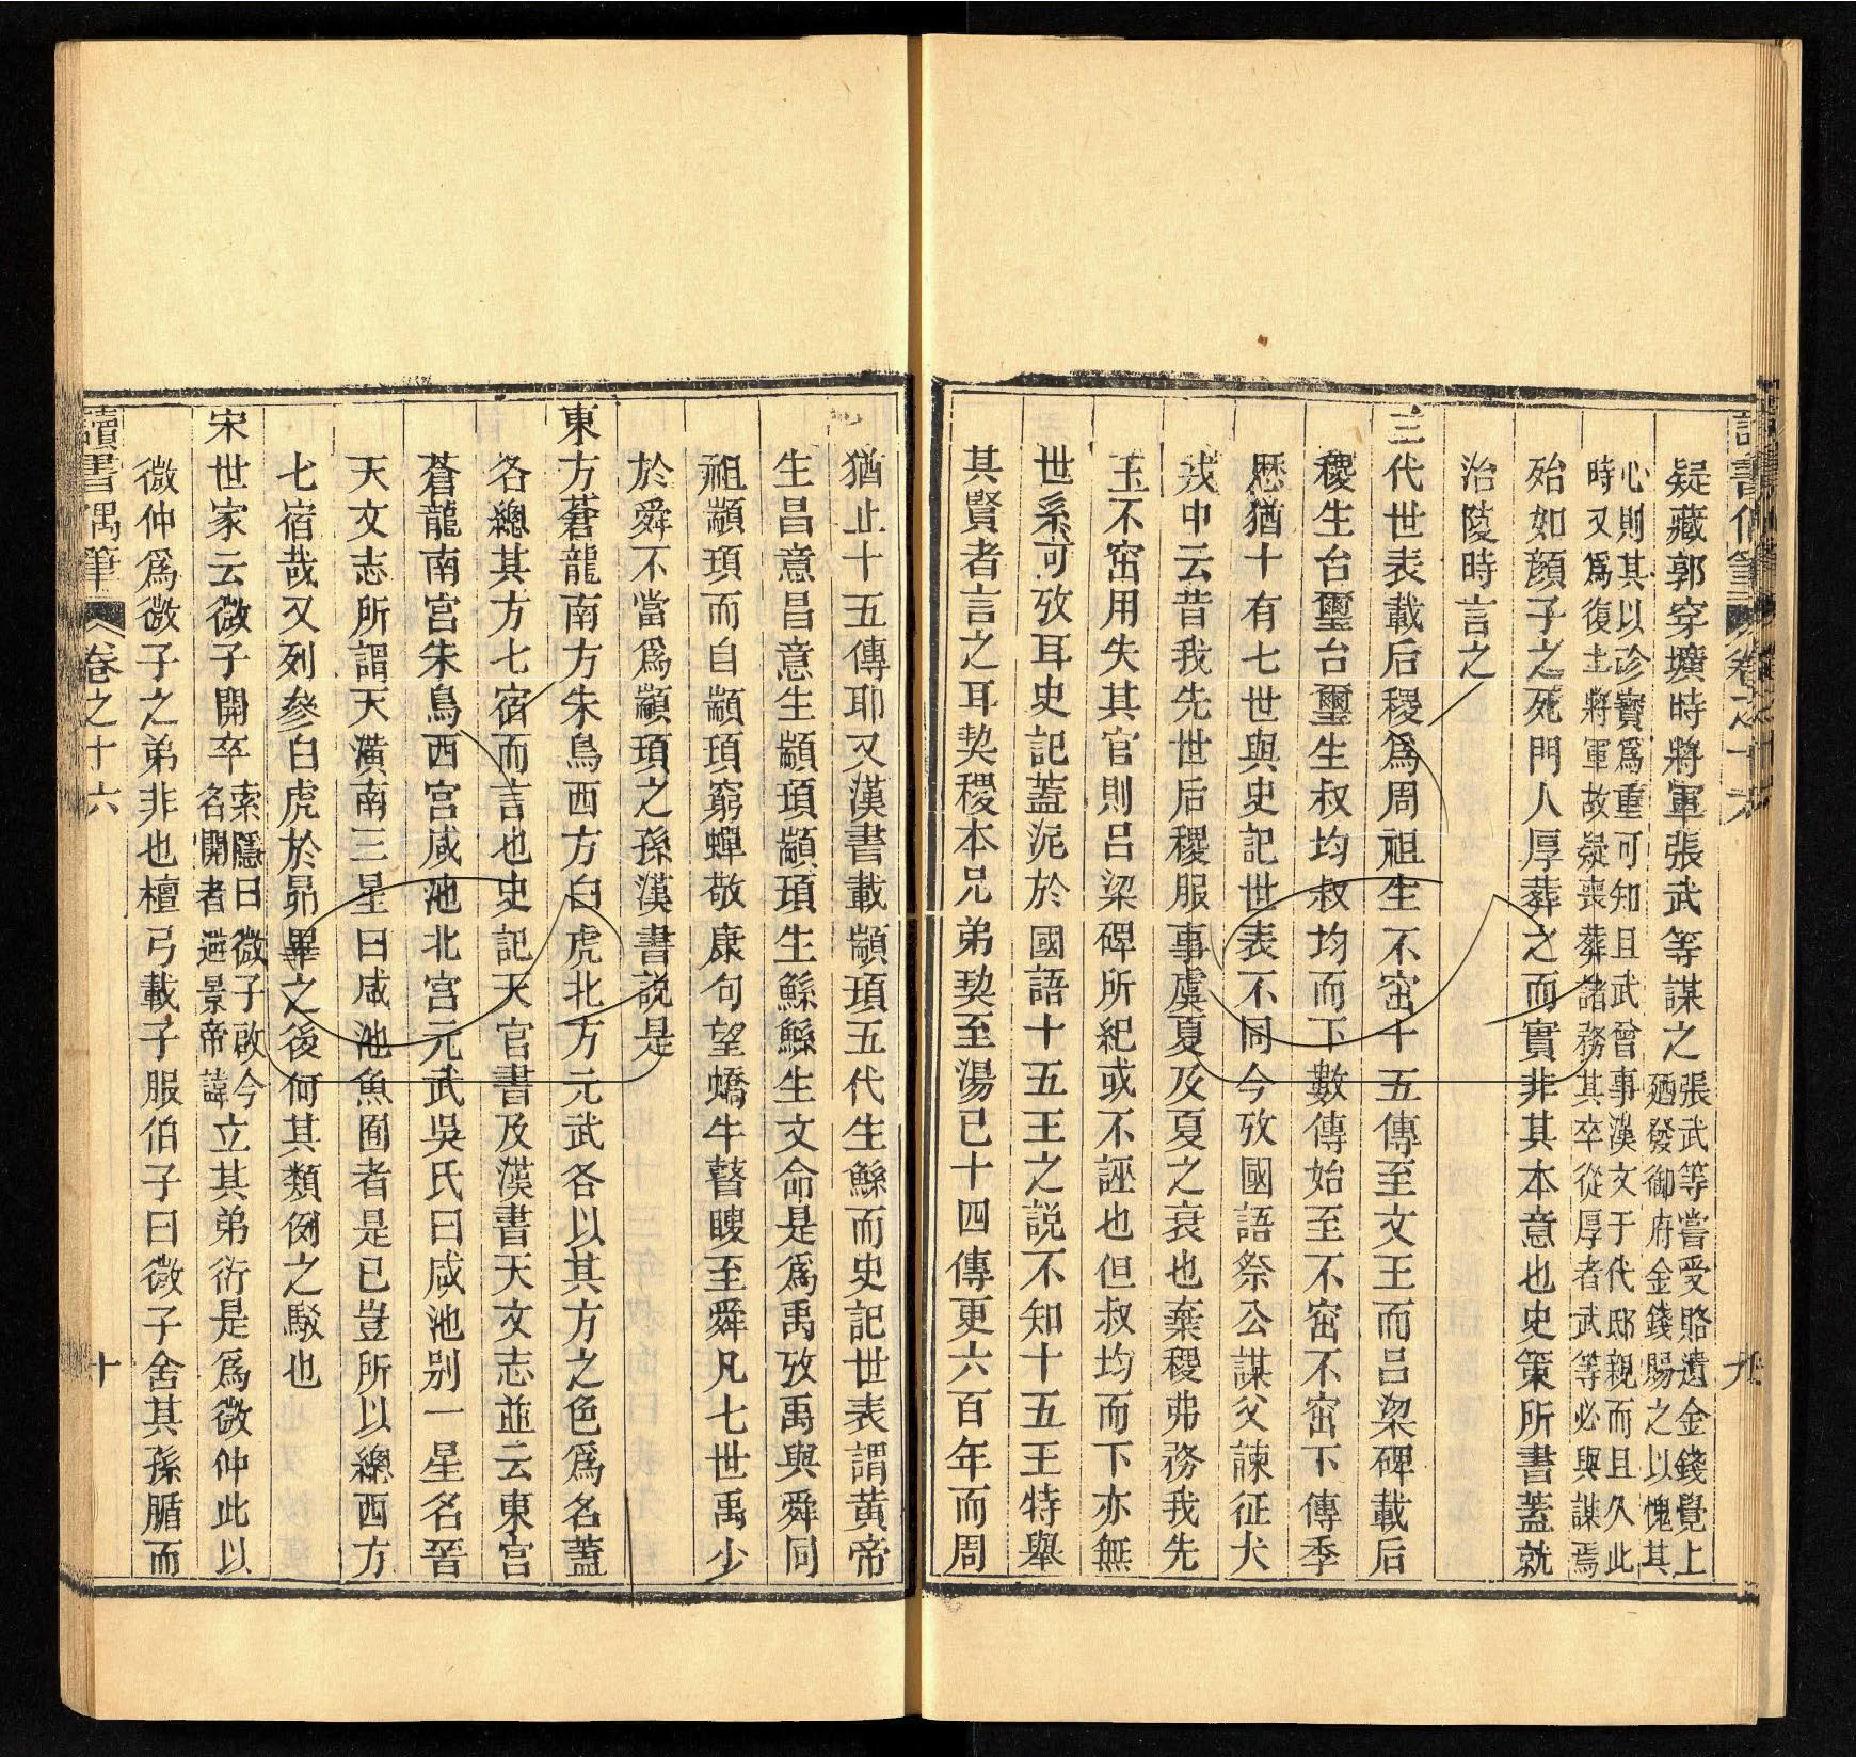 讀書偶筆 卷之十六 九
疑藏郭穿壙時將軍張武等謀之張武等嘗受賂遺金錢覺上
廼發御府金錢賜之以愧其
心則其以珍寶爲重可知且武曾事漢文于代邸親而且久此
時又爲復土將軍故疑喪葬諸務其卒從厚者武等必與謀焉
殆如顔子之死門人厚葬之而實非其本意也史策所書蓋就
治陵時言之
三代世表載后稷爲周祖生不窋十五傳至文王而呂梁碑載后
稷生台璽台璽生叔均叔均而下數傳始至不窋不窋下傳季
歷猶十有七世與史記世表不同今攷國語祭公謀父諫征犬
戎中云昔我先世后稷服事虞夏及夏之衰也棄稷弗務我先
王不窋用失其官則呂梁碑所紀或不誣也但叔均而下亦無
世系可攷耳史記蓋泥於國語十五王之説不知十五王特舉
其賢者言之耳契稷本兄弟契至湯已十四傳更六百年而周
猶止十五傳耶又漢書載顓頊五代生鯀而史記世表謂黃帝
生昌意昌意生顓頊顓頊生鯀鯀生文命是爲禹攷禹與舜同
祖顓頊而自顓頊窮蟬敬康句望蟜牛瞽瞍至舜凡七世禹少
於舜不當爲顓頊之孫漢書説是
東方蒼龍南方朱鳥西方白虎北方元武各以其方之色爲名蓋
各總其方七宿而言也史記天官書及漢書天文志並云東宮
蒼龍南宮朱鳥西宮咸池北宮元武吳氏曰咸池别一星名晉
天文志所謂天潢南三星曰咸池魚囿者是已豈所以總西方
七宿哉又列參白虎於昴畢之後何其類例之駁也
宋世家云微子開卒索隱曰微子啟今
名開者避景帝諱立其弟衍是爲微仲此以
微仲爲微子之弟非也檀弓載子服伯子曰微子舍其孫腯而
讀書偶筆 卷之十六 十